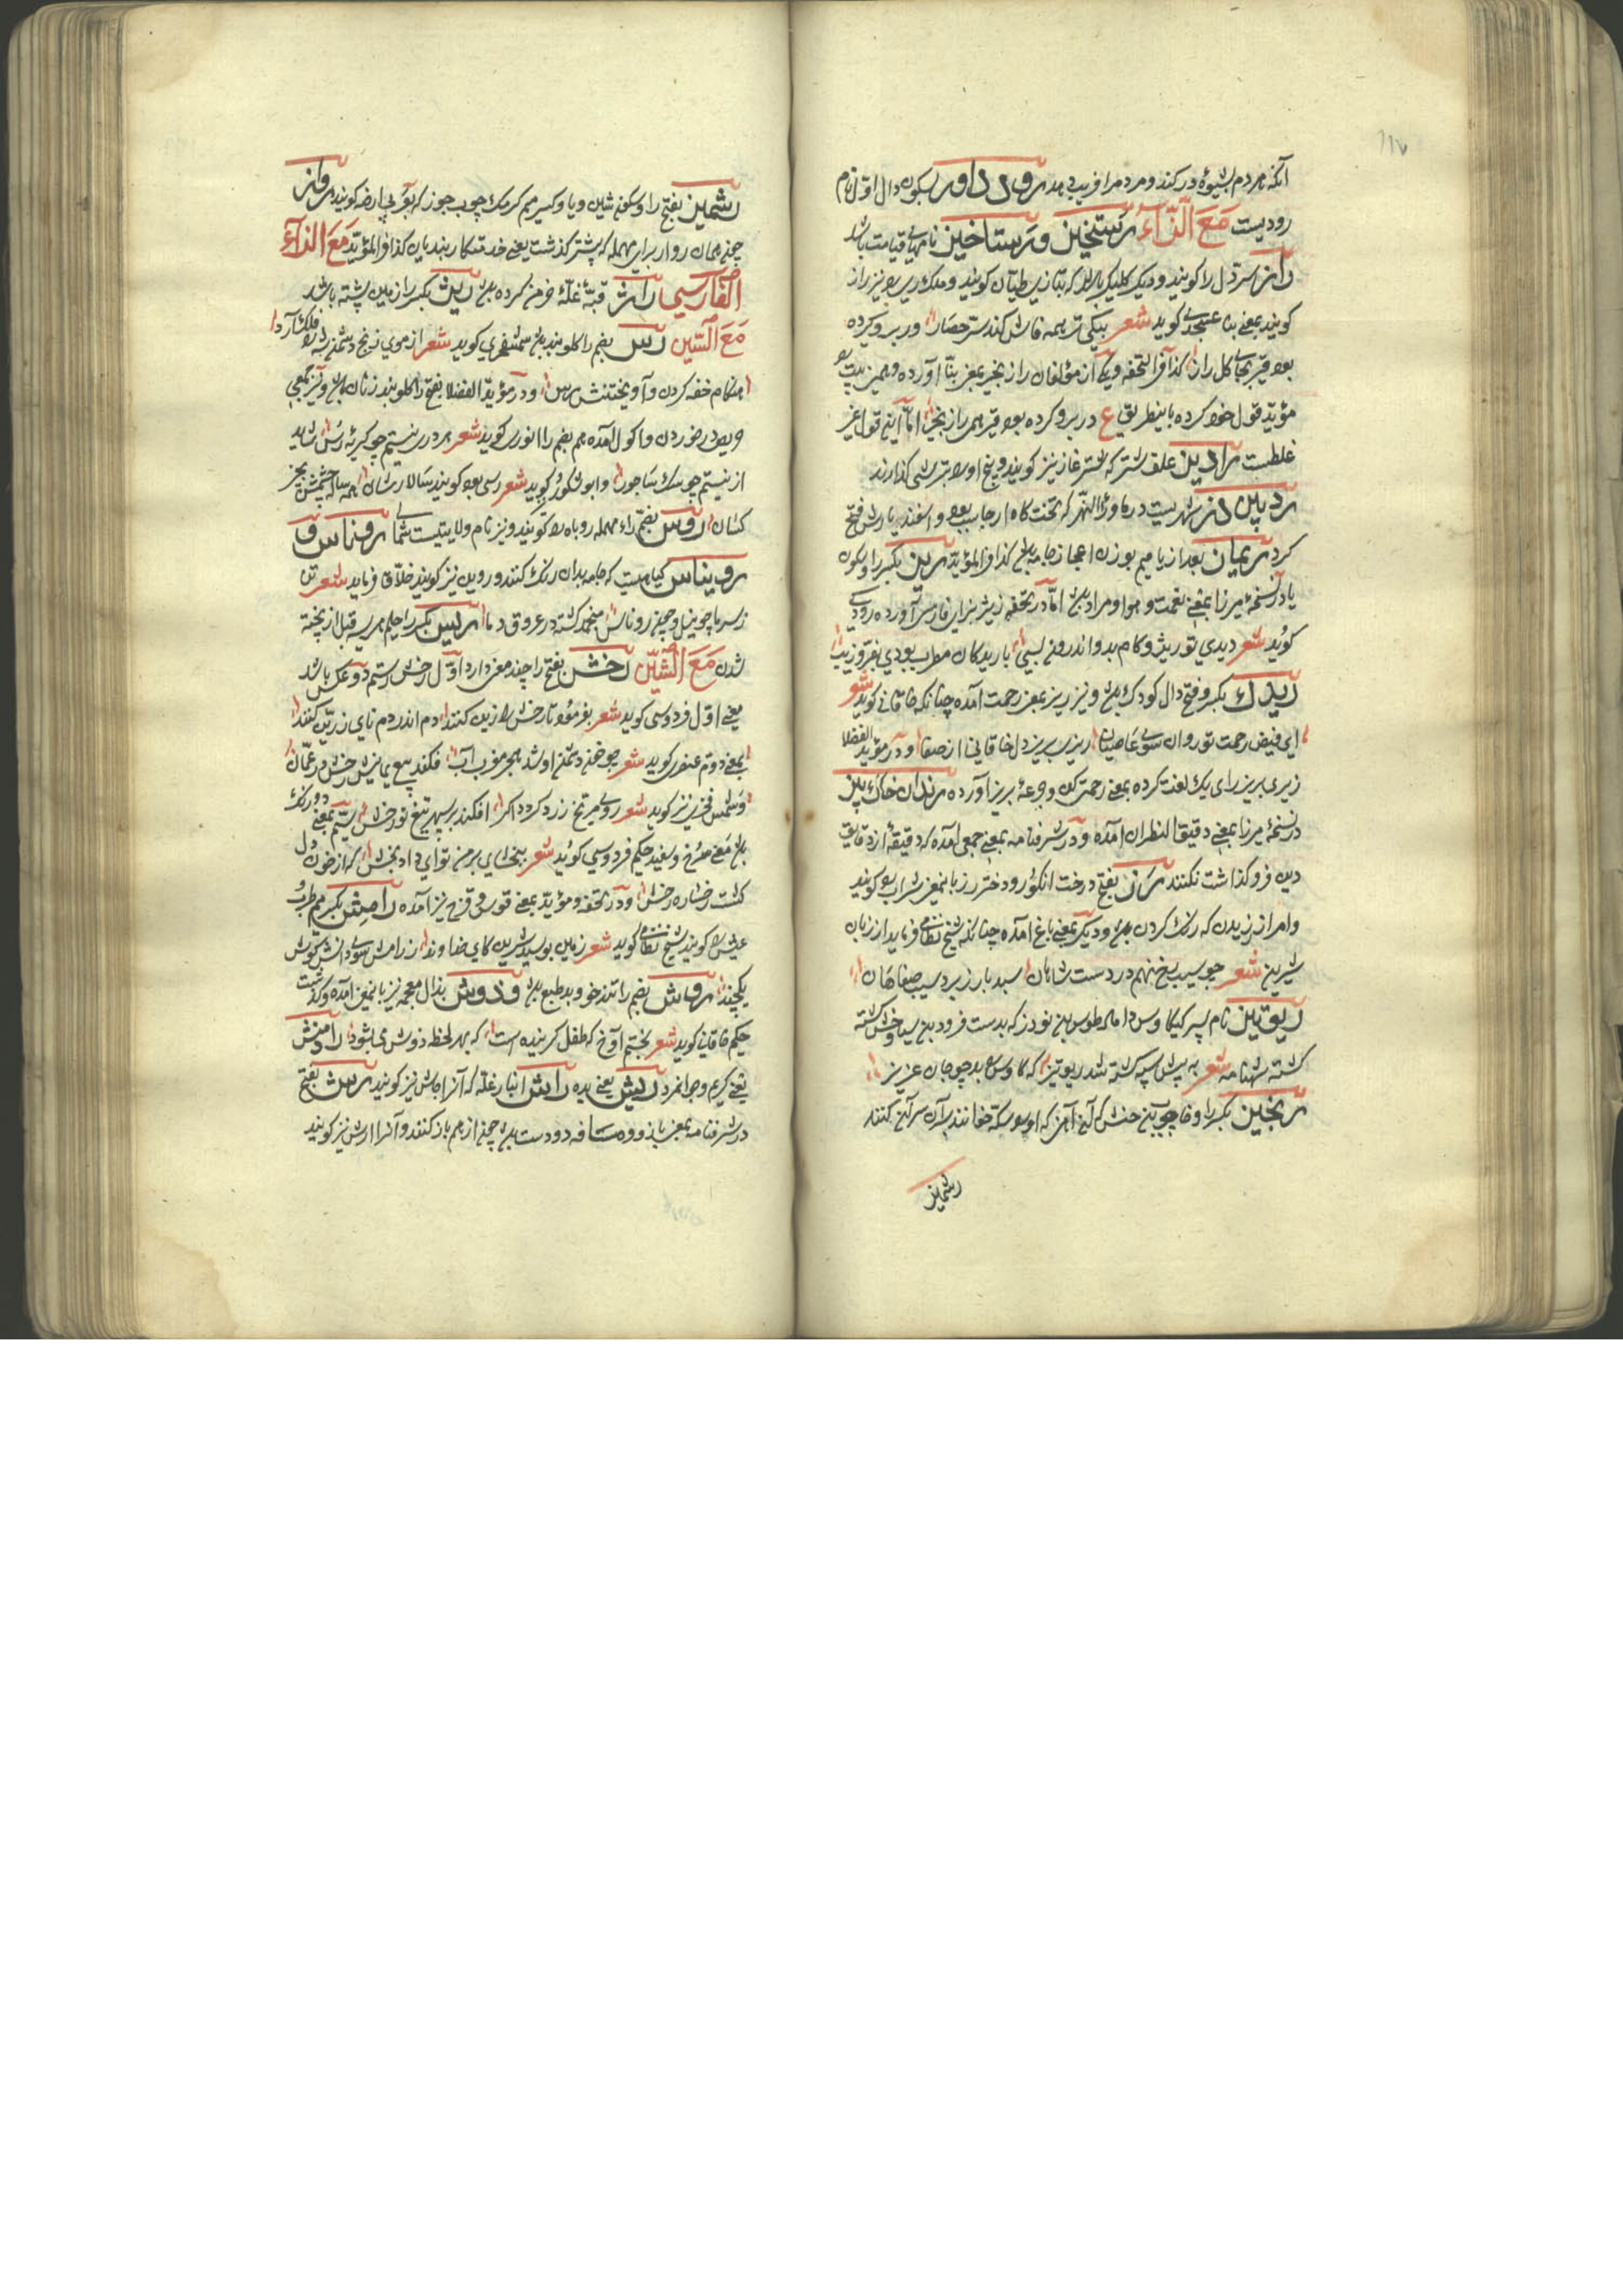 ۱۱۷
آنکه مردم بشیوهٔ در کند و مردم را فریب دهد رود داور بسکون دال اول نام
رودیست مع الزاء رستخیز و رستاخیز نامهای قیامت باشد
راز سر دل را کویند و دیکر کلیکر باشد که بتازیش طیان کویند و
کویند بمعنی بنا عسجدی کوید شعر بیکی تیر همه فاش کند سر حصار ور برو کرده
بود قیر بجای کل راز کذا فی التحفه و یکی از مؤلفان راز بجیر بمعنی بنا آورده و همین بیت
مؤید قول خود کرده باینطریق ع در برو کرده بود قیر همی راز بجیر اما این قول غیر
غلطست رادیز علف شتر که شتر غاز نیز کویند و بیخ او را بترشی کذارند
شهریست در ماوراء النهر که تخت کاه ارجاسب بود و اسفندیارش فتح
کرد ریماز بعد از یا میم بوزن اعجاز جامه کذا فی المؤید ریز بکسر را و سکون
یا در نسخهٔ میرزا بمعنی نعمت و هوا و مراد اما در تحفه ریژ بزای فارسی آورده رودکی
کوید شعر دیدی تو ریژ و کام بدو اندرون بسی با ریدکان مطرب بودی بفر و زیب
ریدک بکسر و فتح دال کودک و نیز ریز بمعنی رحمت آمده چنانکه خاقانی کوید شعر
ای فیض رحمت تو روان سوی عاصیان ریزی بریز بر دل خاقانی از صفا و در مؤید الفضلا
زیری بریز رای یک لغت کرده بمعنی رحمت کن و جرعهٔ بریز آورده رندان خاک بیز
در نسخهٔ میرزا بمعنی دقیق النظران آمده و در شرفنامه بمعنی جمعی آمده که دقیقهٔ از دقایق
دین فرو کذاشت نکنند رز بفتح درخت انکور و دختر رز باینمعنی شراب را کویند
و امر از رزیدن که رنک کردن و دیکر بمعنی باغ آمده چنانکه شیخ نظامی فرماید از زبان
شیرین شعر چو سیب رخ نهم در دست شاهان سبد باز برد سیب صفاهان
ریونیز نام پسر کیکاوس داماد طوس بن نوذر که بدست فرود بن سیاوخش کشته
کشته شهنامه شعر به پیش سپه کشته شد ریونیز که کاوس را بد چو جان عزیز
بکسر را و خا چوبی آهن که او را سکه خوانند بر آن سر آهن کنند
رشمیز
رشمیز بفتح را و سکون شین و یا و کسر میم کرمک چوب خور که بعربی ارضه کویند رواز
همان روار برای مهمله که پیشتر کذشت یعنی خدمتکار بندیان کذا فی المؤید مع الزاء
الفارسی راژ قبهٔ غلهٔ خرمن کرده ریژ بکسر را زمین پشته باشد
مع السین رس بضم را کلوبند کوید شعر از موی زنخ دشمن
هنکام خفه کردن و آویختنش رس و در مؤید الفضلا بفتح را کلوبند زنان و نیز بمعنی
در خوردن و اکول آمده هم بضم را انوری کوید شعر هر دری نیستم چو کربهٔ رس شاید
ار نیستم چو سک ساجور و ابو شکور کوید شعر رسی بود کویند سالار شان همه ساله چشمش بچیز
کسان روس بضم راء مهمله روباه را کویند و نیز نام ولایتیست شمالی روناس و
رویناس کیاهیست که جامه بدان رنک کنند و روین نیز کویند خلاق فرماید شعر تن
ز سرما چو نیل و چون روناس منجمد کشته در عروق دما ریس بکسر را حلیم هریسه قبل از پخته
شدن مع الشین رخش بفتح را چند معنی دارد اول رخش رستم دوم عکس باشد
معنی اول فردوسی کوید شعر بفرمود تا رخش را زین کنند دم اندر دم نای زرین کنند
بمعنی دوم عنصری کوید شعر چو خون دشمنی او شد ببحر مغرب آب فکند تیغ یمانیش رخش در عمان
و شمس فخری نیز کوید شعر روی مریخ زرد کردد اکر افکند بر سپهر تیغ تو رخش سیم بمعنی دو رنک
معنی سرخ و سفید حکیم فردوسی کوید شعر ببخشای بر من تو ای دادبخش که از خون دل
کشت رخساره رخش و در تحفه و مؤید بمعنی قوس قزح نیز آمده رامش بکسر میم طرب و
عیش را کویند شیخ نظامی کوید شعر زمین بوسید شیرین کای خداوند ز رامش سوی دانش کوش
یکچند روش بضم را تند خو و بد طبع و ذوش بذال معجمه نیز باینمعنی آمده و کذشت
حکیم خاقانی کوید شعر بختم آوخ که طفل کرینده است که بهر لحظه ذوش می بشود رادمنش
یعنی کریم و جوانمرد ریش یعنی راش انبار غله که آنرا جاش نیز کویند رش بفتح
در شرفنامه بمعنی بازو و مسافه دو دست چون از هم باز کنند و آنرا ارش نیز کویند